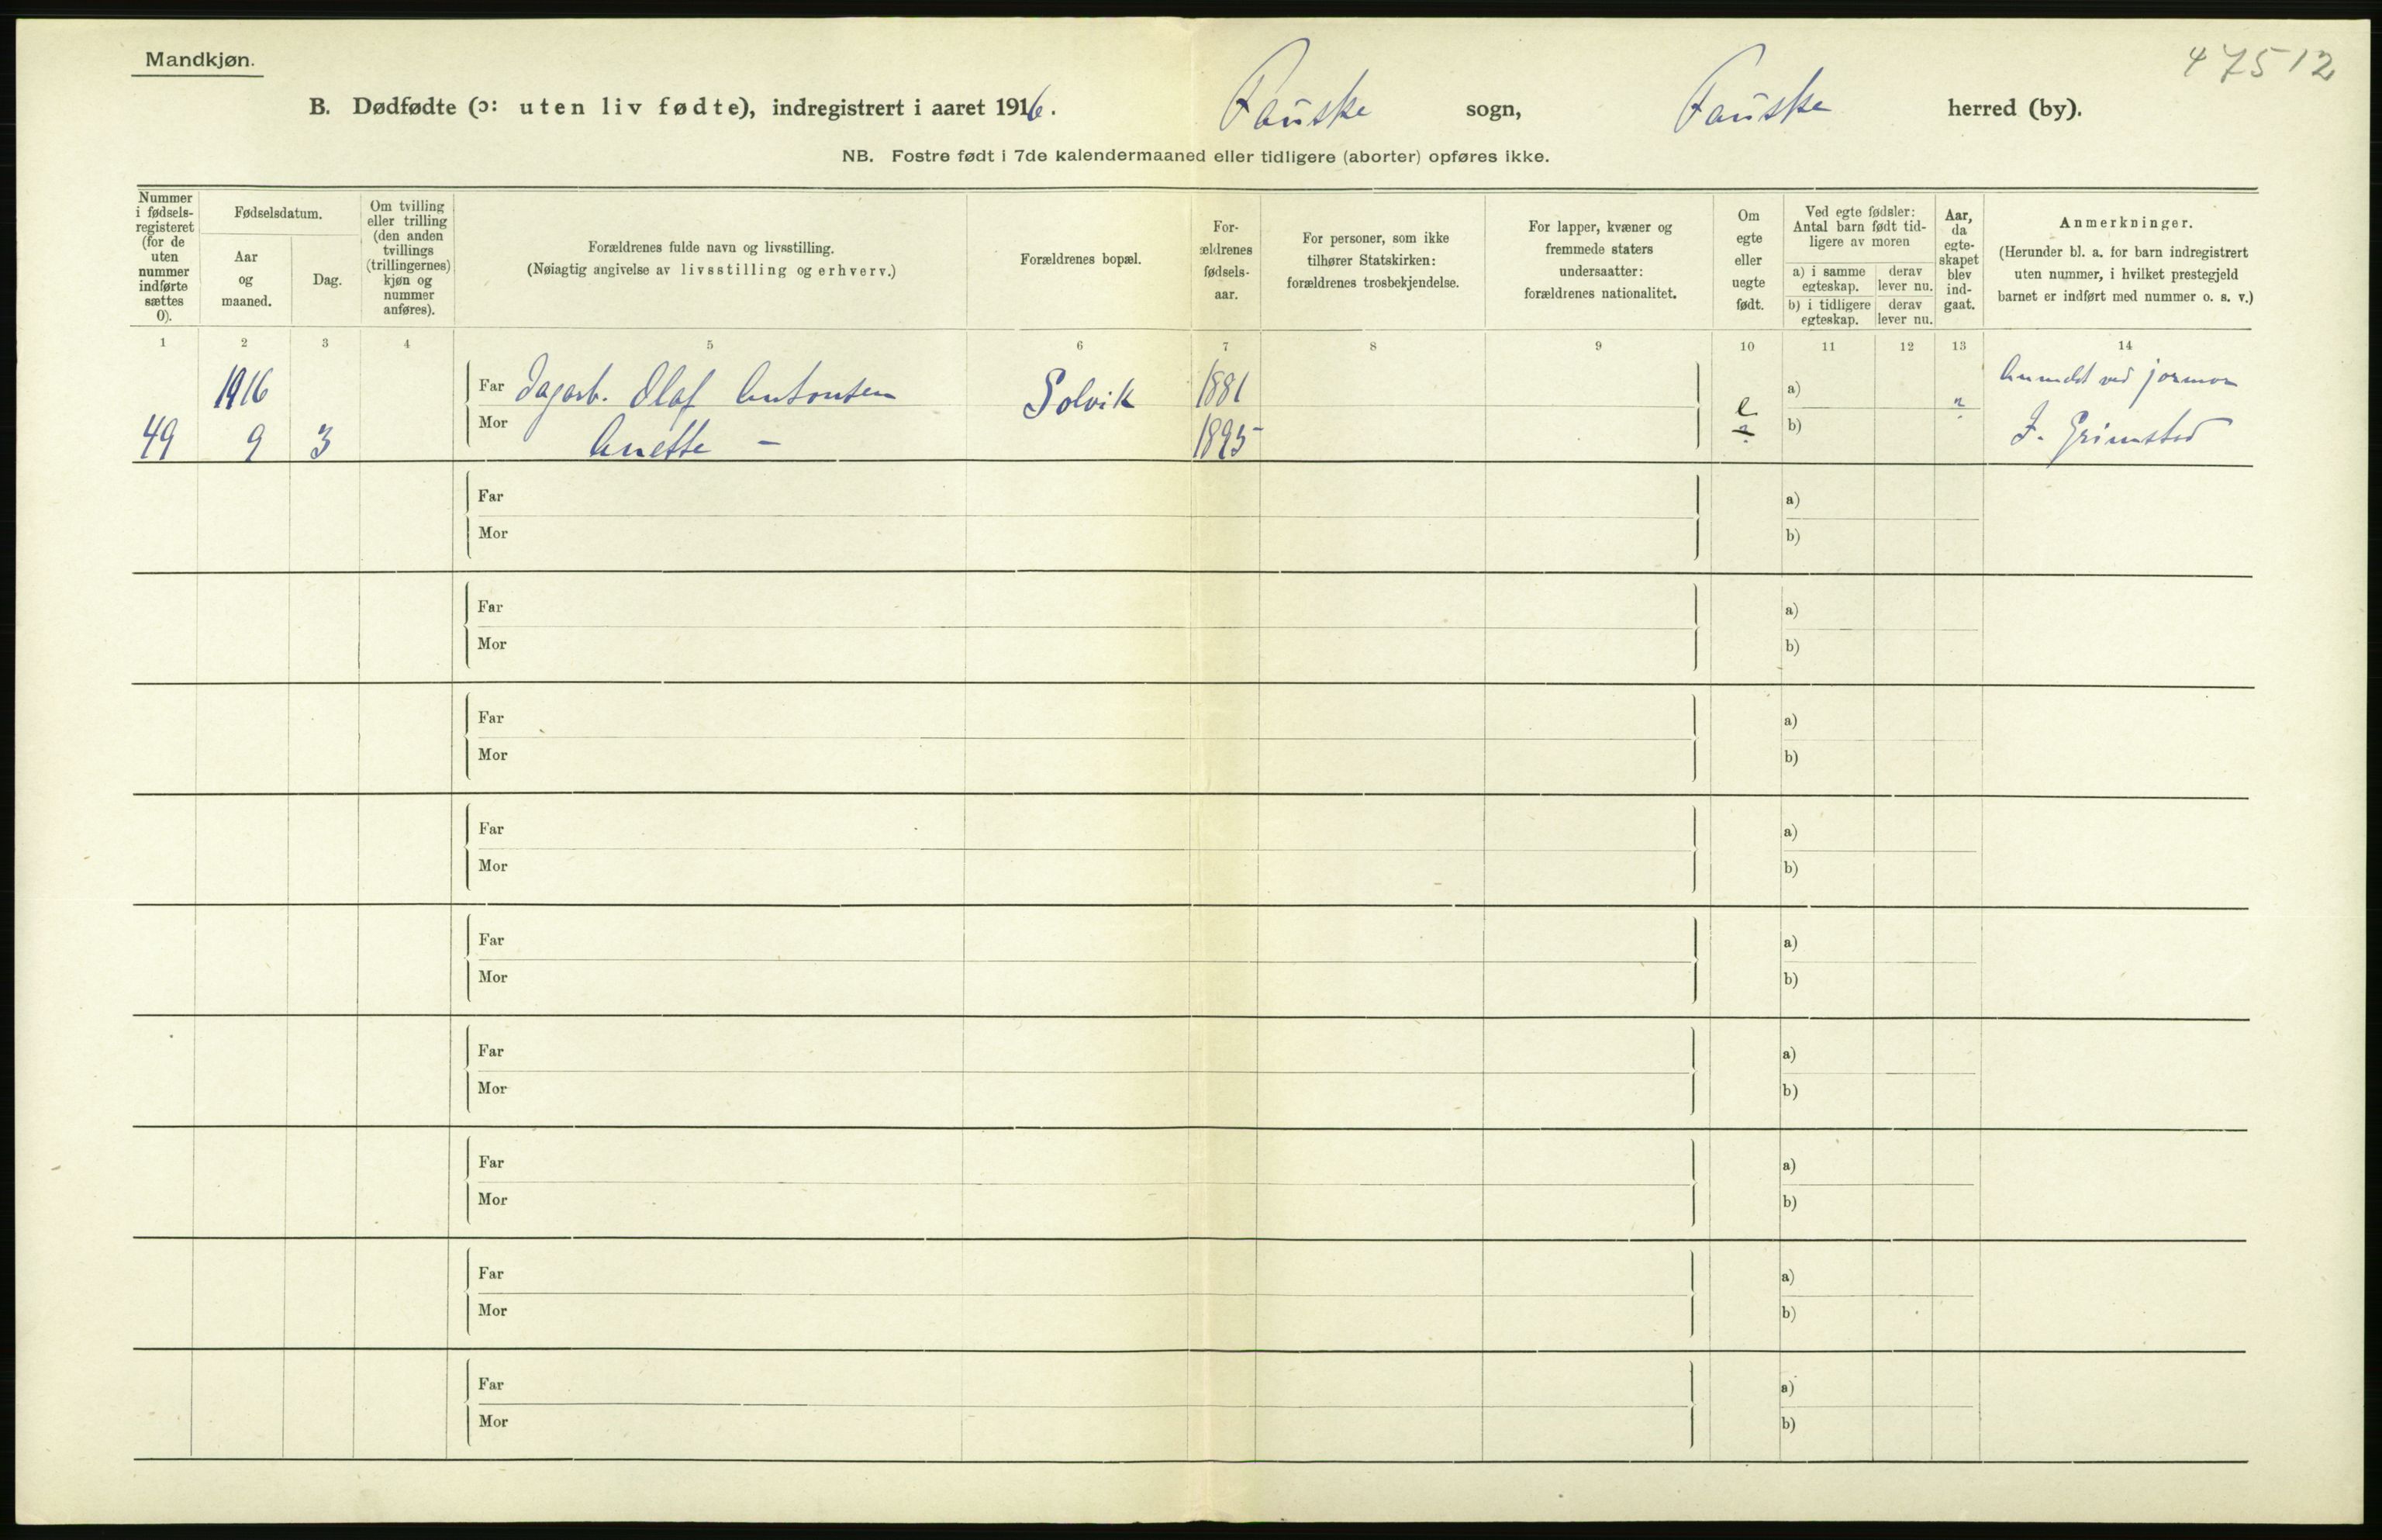 Mandkjøn.
47512
B. Dødfødte (ɔ: uten liv fødte), indregistrert i aaret 1916. Fauske sogn, Fauske herred (by).
NB. Fostre født i 7de kalendermaaned eller tidligere (aborter) opføres ikke.
Nummer
i fødsels-
registeret
(for de
uten
nummer
indførte
sættes
0).
Fødselsdatum.
Aar
og
maaned.
Dag.
Om tvilling
eller trilling
(den anden
tvillings
(trillingernes)
kjøn og
nummer
anføres).
Forældrenes fulde navn og livsstilling.
(Nøiagtig angivelse av livsstilling og erhverv.)
Forældrenes bopæl.
For-
ældrenes
fødsels-
aar.
For personer, som ikke
tilhører Statskirken:
forældrenes trosbekjendelse.
For lapper, kvæner og
fremmede staters
undersaatter:
forældrenes nationalitet.
Om
egte
eller
uegte
født.
Ved egte fødsler:
Antal barn født tid-
ligere av moren
a) i samme
egteskap.
derav
lever nu.
b) i tidligere
egteskap.
derav
lever nu.
Aar,
da
egte-
skapet
blev
ind-
gaat.
Anmerkninger.
(Herunder bl. a. for barn indregistrert
uten nummer, i hvilket prestegjeld
barnet er indført med nummer o. s. v.)
1 2 3 4 5 6 7 8 9 10 11 12 13 14
1916 Far Dagarb. Olaf Antonsen Solvik 1881 e a) " Anmeldt ved jormor
49 9 3 Mor Anette – 1895 ? b) J. Grimstad
Far a)
Mor b)
Far a)
Mor b)
Far a)
Mor b)
Far a)
Mor b)
Far a)
Mor b)
Far a)
Mor b)
Far a)
Mor b)
Far a)
Mor b)
Far a)
Mor b)